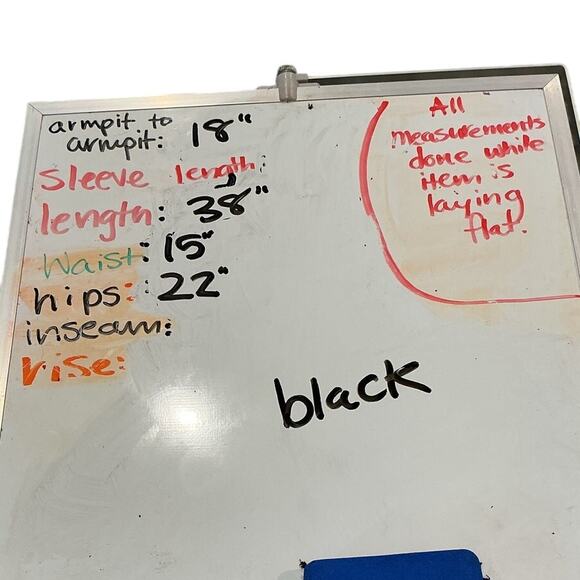 armpit to
armpit: 18"
sleeve length:
length: 38"
Waist: 15"
hips: 22"
inseam:
rise:
All
measurements
done while
item is
laying
flat.
black